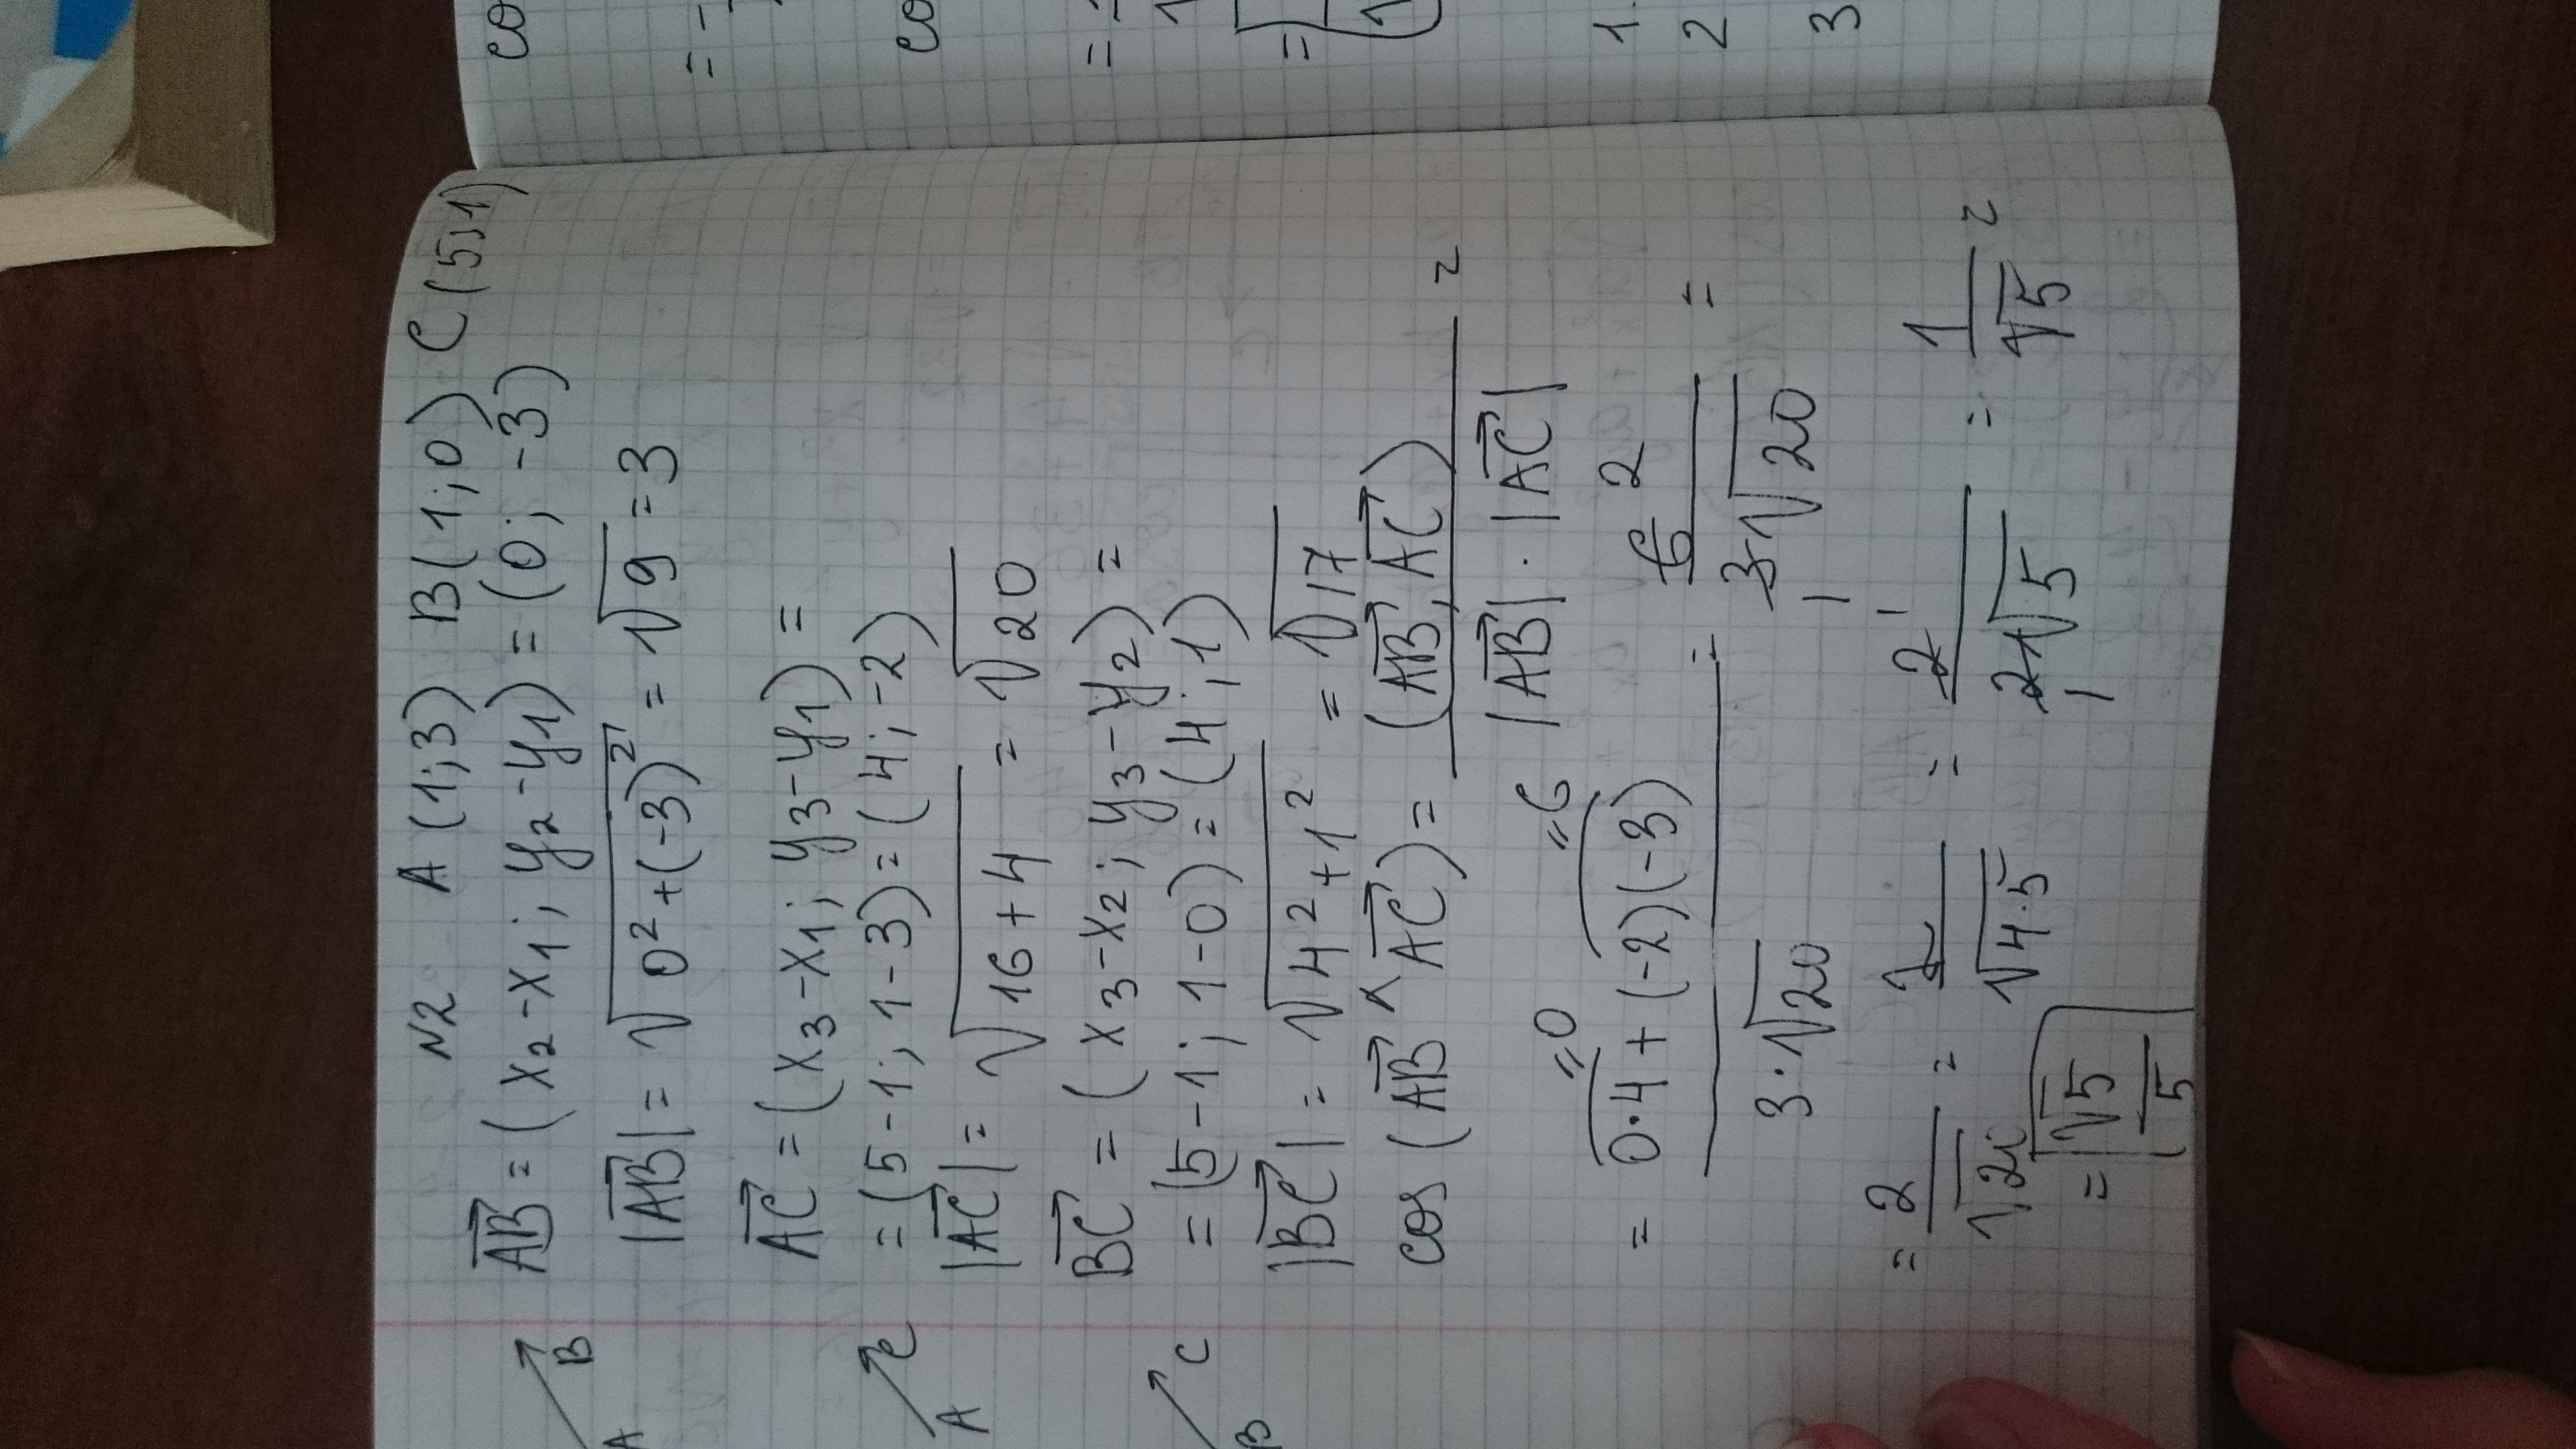 N2 A(1;3) B(1;0) C(5;1)
AB = (x₂-x₁; y₂-y₁) = (0; -3)
|AB| = √0²+(-3)² = √9 = 3
AC = (x₃-x₁; y₃-y₁) =
= (5-1; 1-3) = (4; -2)
|AC| = √16+4 = √20
BC = (x₃-x₂; y₃-y₂) =
= (5-1; 1-0) = (4; 1)
|BC| = √4²+1² = √17
cos (AB ^ AC) = (AB, AC) / |AB|·|AC| =
= 0·4 + (-2)(-3) / 3·√20 = 6 / 3√20 =
=0 =6 2 1
= 2/√20 = 2/√4·5 = 2/2√5 = 1/√5 =
1 1
= √5/5
A B
A C
B C
co
= -
co
=
1
=
1.
2
3